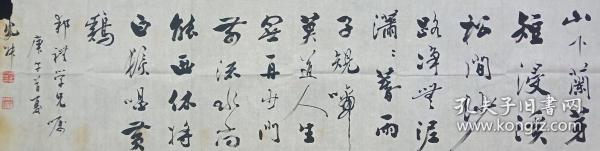 山下蘭芽
短浸溪
松間沙
路淨無泥
瀟〻暮雨
子規啼
莫道人生
無再少門
前流水尚
能西休將
白髮唱黃
鷄
庚午首夏
孔夫子旧书网
www.kongfz.com